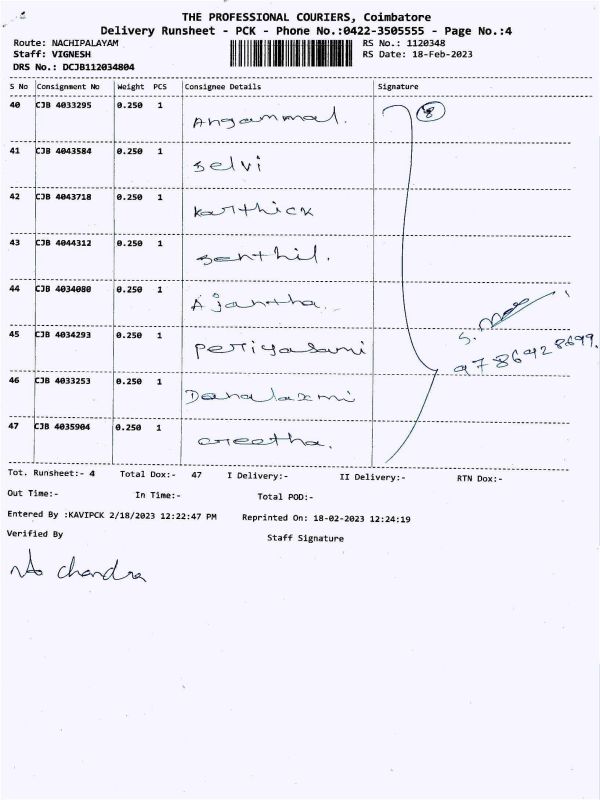 THE PROFESSIONAL COURIERS, Coimbatore
Delivery Runsheet - PCK - Phone No.:0422-3505555 - Page No.:4
Route: NACHIPALAYAM RS No.: 1120348
Staff: VIGNESH RS Date: 18-Feb-2023
DRS No.: DCJB112034804
S No Consignment No Weight PCS Consignee Details Signature
40 CJB 4033295 0.250 1 Angammal. 8
41 CJB 4043584 0.250 1 Selvi
42 CJB 4043718 0.250 1 Karthick
43 CJB 4044312 0.250 1 Senthil.
44 CJB 4034080 0.250 1 Ajantha.
45 CJB 4034293 0.250 1 Periyasami
9786928699
46 CJB 4033253 0.250 1 Danalaxmi
47 CJB 4035904 0.250 1 Greetha.
Tot. Runsheet:- 4 Total Dox:- 47 I Delivery:- II Delivery:- RTN Dox:-
Out Time:- In Time:- Total POD:-
Entered By :KAVIPCK 2/18/2023 12:22:47 PM Reprinted On: 18-02-2023 12:24:19
Verified By Staff Signature
chandra